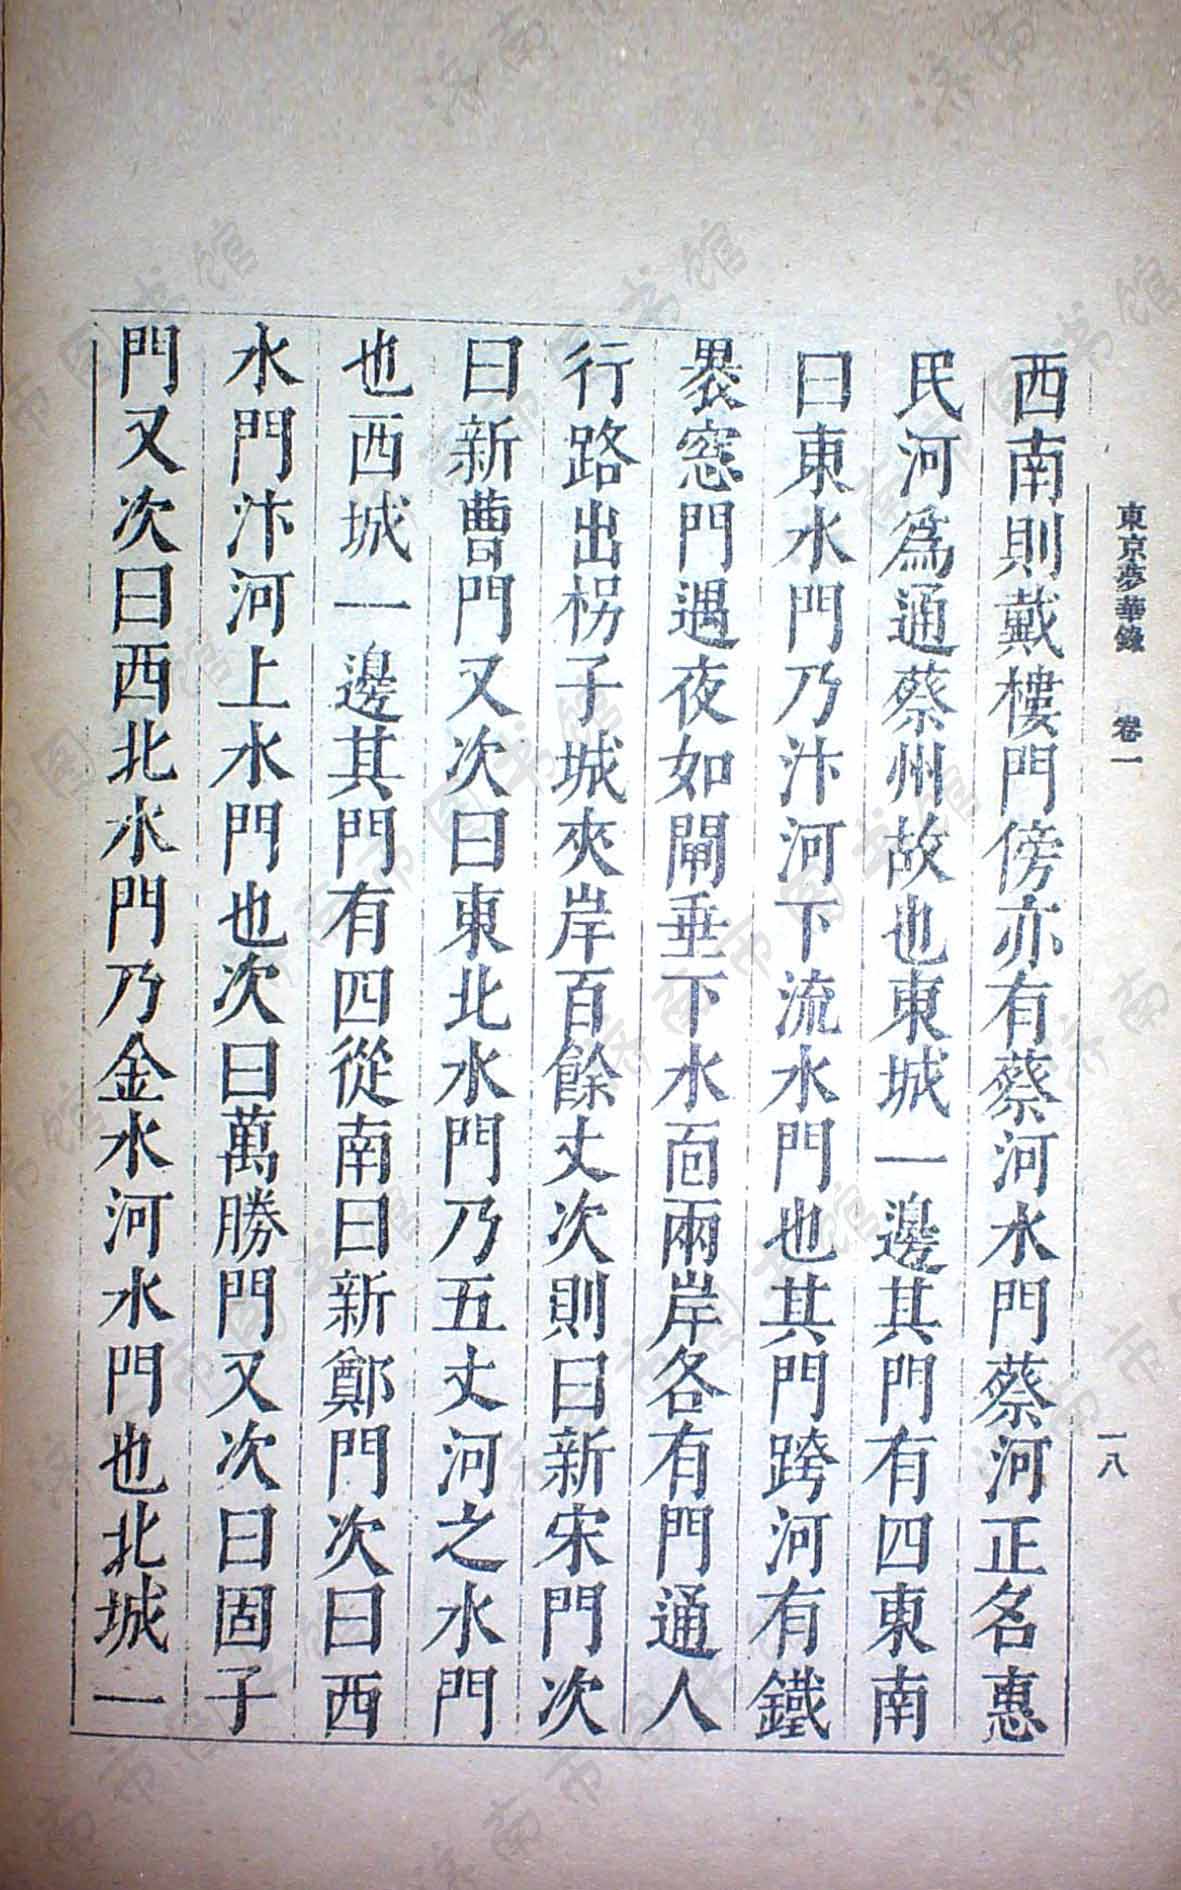 東京夢華錄 卷一 一八
西南則戴樓門傍亦有蔡河水門蔡河正名惠
民河爲通蔡州故也東城一邊其門有四東南
曰東水門乃汴河下流水門也其門跨河有鐵
褁窓門遇夜如閘垂下水靣兩岸各有門通人
行路出柺子城夾岸百餘丈次則曰新宋門次
曰新曹門又次曰東北水門乃五丈河之水門
也西城一邊其門有四從南曰新鄭門次曰西
水門汴河上水門也次曰萬勝門又次曰固子
門又次曰西北水門乃金水河水門也北城一
济南市图书馆